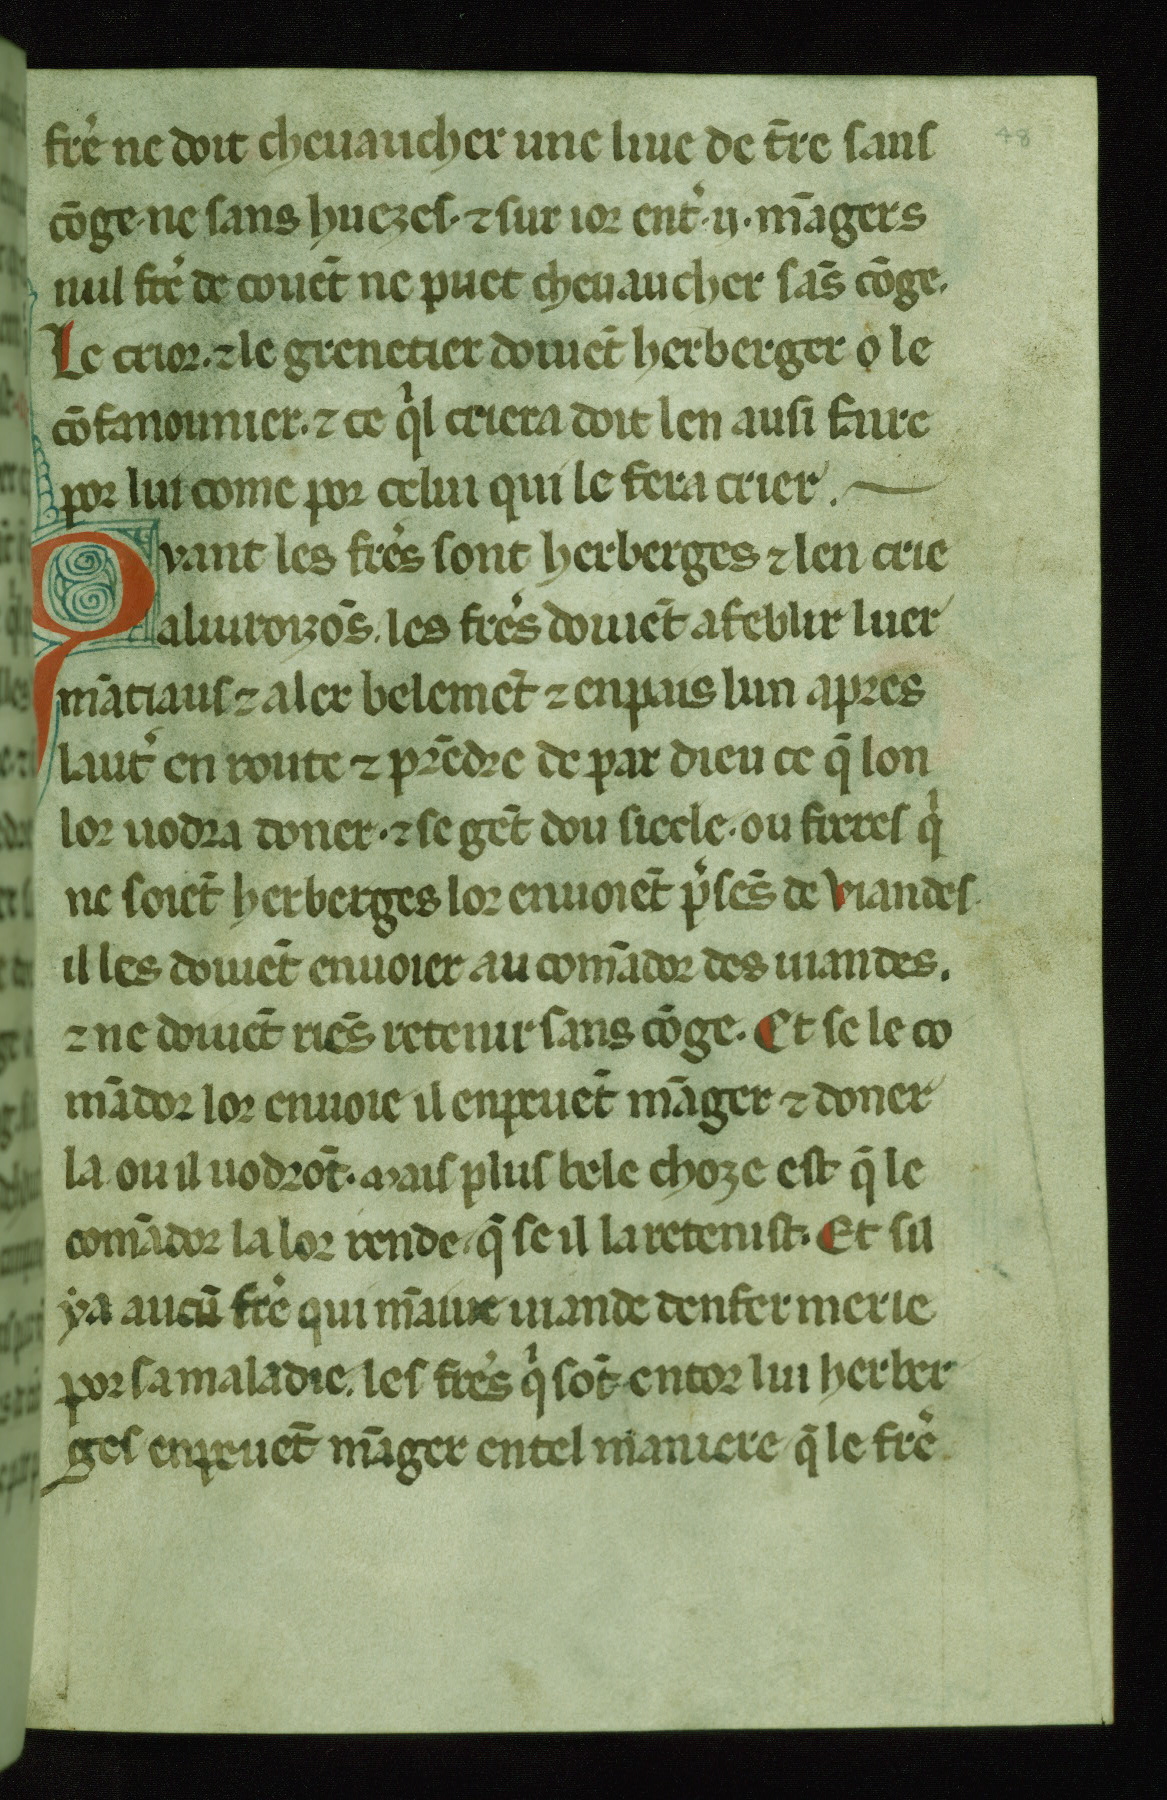 fre̾ ne doit cheuaucher une liue de t̄re sans 48
cōge. ne sans huezes. ⁊ sur ior ent̾. ij. māgers
nul fre̾ de couēt ne puet cheuaucher sās cōge.
Le crior. ⁊ le grenetier doiuēt herberger o le
cōfanounier. ⁊ ce qͥl criera doit len ausi faire
por lui come por celui qui le fera crier.
Quant les fre̾s sont herberges ⁊ len crie
aliuroizōs. les fre̾s doiuēt afeblir luer
mātiaus ⁊ aler belemēt ⁊ enpais lun apres
laut̾ en route ⁊ prēdre de par dieu ce q̄ lon
lor uodra doner. ⁊ se gēt dou siecle. ou freres qͥ
ne soiēt herberges lor enuoiēt p̾sēs de viandes.
il les doiuēt enuoier au comādor des uiandes.
⁊ ne doiuēt riēs retenir sans cōge. Et se le co
mādor lor enuoie il enpeuēt māger ⁊ doner
la ou il uodrōt. mais plus bele choze est q̄ le
comādor la lor rende. q̄ se il la retenist. Et sil
ẏa aucū fre̾ qui māiue uiande denfermerie
por sa maladie. les fre̾s qͥ sōt entor lui herber
ges enpeuēt māger entel maniere q̄ le fre̾